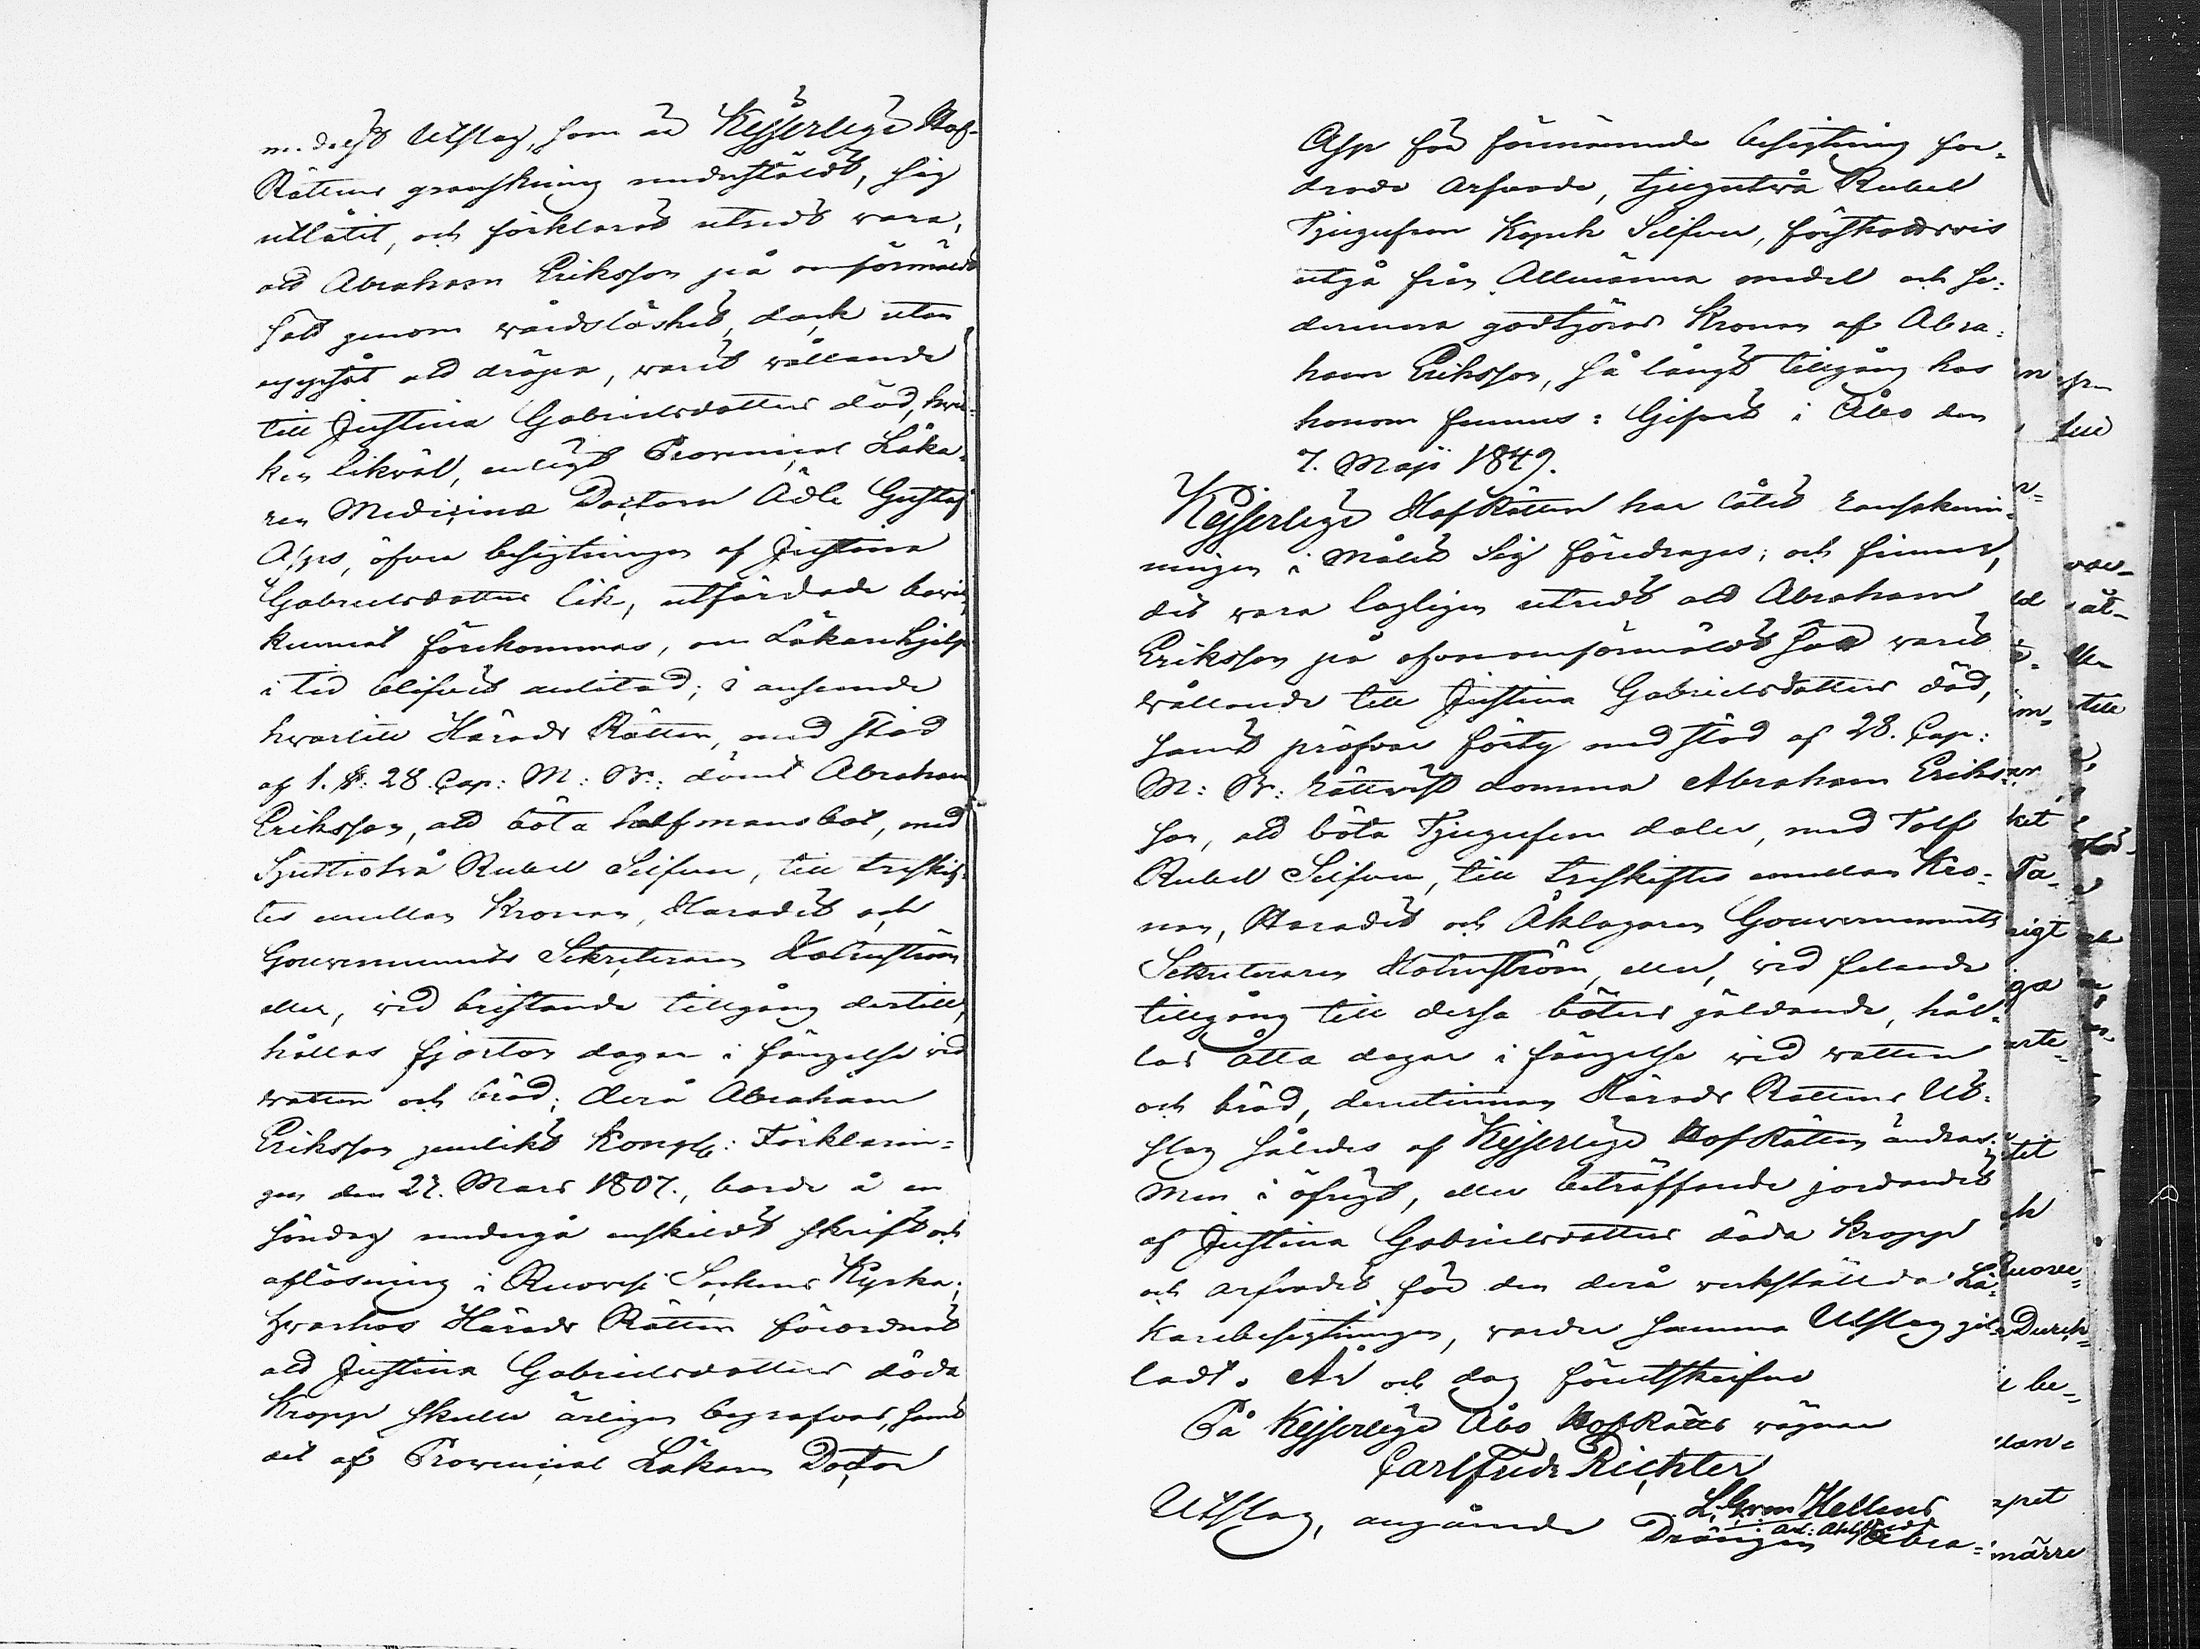 medelst Utslag, som är Kejserlige Hof-
Rättens granskning underställdt, sig
utlåtit, och förklarat utredt vara,
att Abraham Eriksson på omförmäldt
sätt genom vårdslöshet, dock utan
uppsåt att dräpa, varit vållande
till Justina Gabrielsdotters död, hvil-
ken likväl, enligt Provincial Läka-
ren Medicinæ Doctorn Ädle Gustaf
Asps, öfver besigtningen af Justina
Gabrielsdotters lik, utfärdade bevis
kunnat förekommas, om Läkarehjelp
i tid blifvit anlitad; i anseende
hvartill Härads Rätten, med stöd
af 1. §: 28 Cap: M: B: dömt Abraham
Eriksson, att böta half mansbot, med
Sjuttiotvå Rubel Silfver, till treskif-
tes emellan Kronan, Häradet och
Gouvernements Sekreteraren Holmström
eller, vid bristande tillgång dertill,
hållas fjorton dagar i fängelse vid
vatten och bröd; derå Abraham
Eriksson jemlikt Kongl: Förklarin-
gen den 27. Mars 1807., borde å en
söndag undergå enskildt skrift och
aflösning i Ruovesi Sockens Kyrka;
hvarhos Härads Rätten förordnat
att Justina Gabrielsdotters döda
Kropp skulle ärligen begrafvas, samt
det af Provincial Läkaren Doctor
Asp för förenämnde besigtning for-
drade arfvode, tjugutvå Rubel
Tjugufem Kopek Silfver, förskottsvis
utgå från Allmänna medel och se-
dermera godtgöras Kronan af Abra-
ham Eriksson, så långt tillgång hos
honom funnes: Gifvet i Åbo den
7. Maji 1849.
Kejserlige HofRätten har låtit ransaknin-
ningen i målet Sig föredragas; och finner,
det vara lagligen utredt att Abraham
Eriksson på ofvanomförmäldt sätt varit
vållande till Justina Gabrielsdotters död,
samt pröfvar förty med stöd af 28. Cap:
M: B: rättvist domma Abraham Eriks-
son, att böta Tjugufem daler, med Tolf
Rubel Silfver, till treskiftes emellan Kro-
nan, Häradet och Åklagaren Gouvernements
Sekreteraren Holmström, eller, vid felande
tillgång till dessa böters gäldande, hål-
las åtta dagar i fängelse vid vatten
och bröd, derutinnan Härads Rättens Ut-
slag således af Kejserlige HofRätten ändras.
Men i öfrigt, eller beträffande jordandet
af Justina Gabrielsdotters döda Kropp
och arfvodet för den derå verkställda Lä-
karebesigtningen, varder samma Utslag gil-
ladt. År och dag förutskrifne
På Kejserlige Åbo HofRätts vägnar
Carl Fredr Richter
L. G. von Hellens
Utslag, angående Drängen Abra-